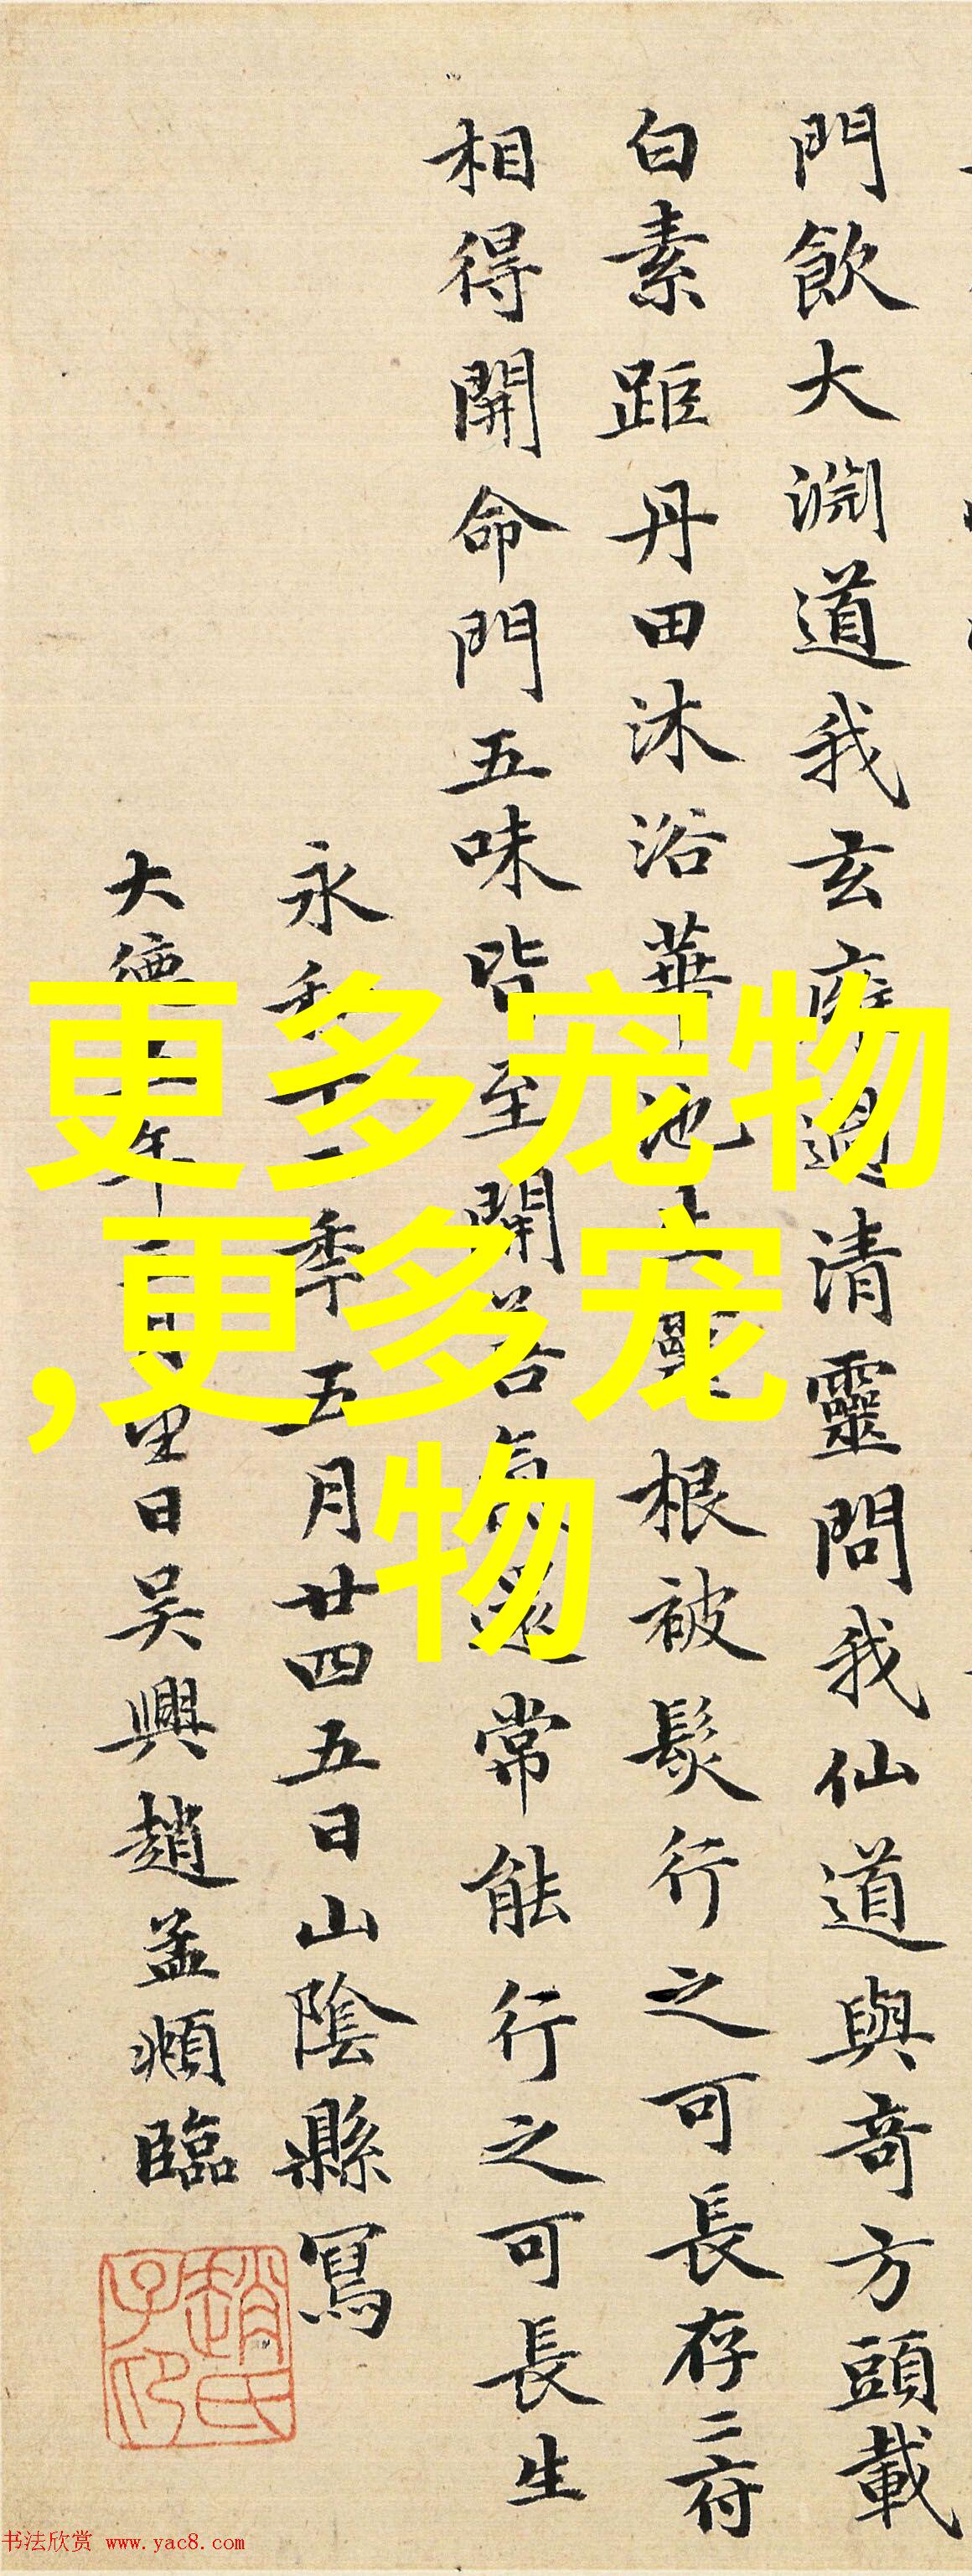 門飲大淵道我玄廱過清靈問我仙道與奇方頭載
白素距丹田沐浴華池生靈根被髮行之可長存二府
相得開命門五味皆至開善氣還常能行之可長生
永和十二季五月廿四五日山陰縣寫
大德 年 月 日吳興趙孟頫臨
趙氏子印
更多宠物
,更多宠
物
书法欣赏 www.yac8.com